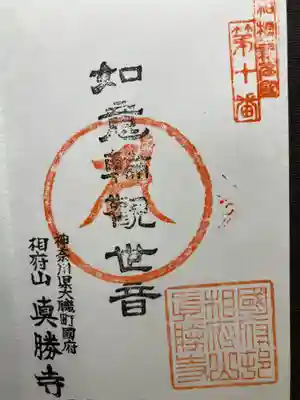 第十番
如意輪観世音
神奈川県大磯町國府
相府山 真勝寺
國府邨
相府山
真勝寺